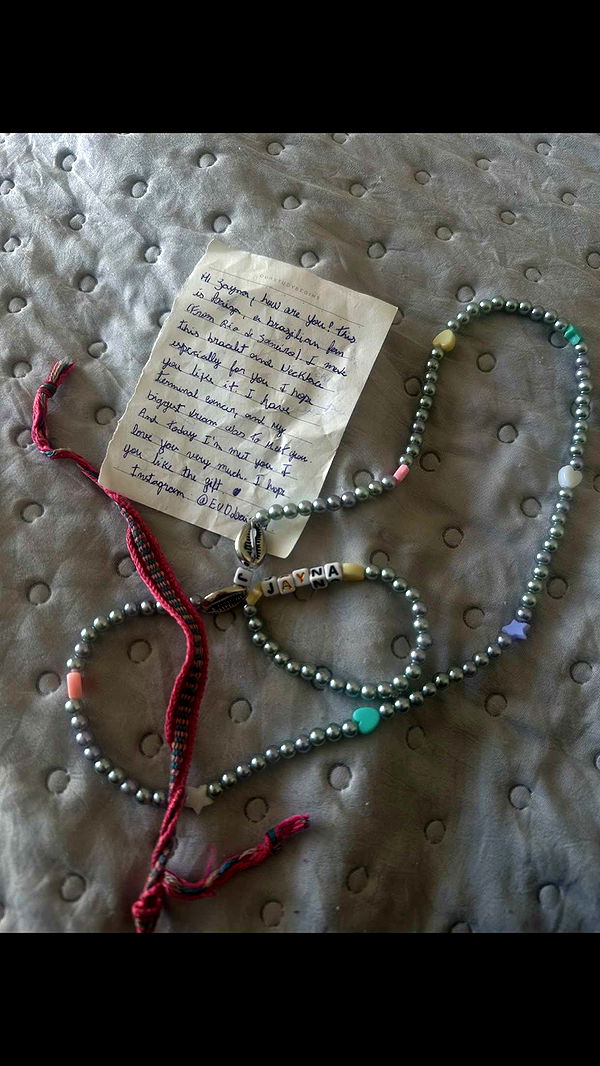 Hi Jayna, how are you? this
is Laiza, a brazilian fan
(From Rio de Janeiro) I made
this bracelt and Necklace
especially for you. I hope
you like it. I have
terminal cancer, and my
biggest dream was to meet you.
And today I'm met you I
love you very much. I hope
you like the gift.
Instagram:
L
JAYNA
N